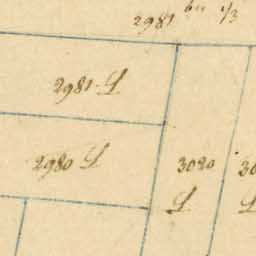 2981 bis 1/3
2981 L
2980 L
3020
L
30
L